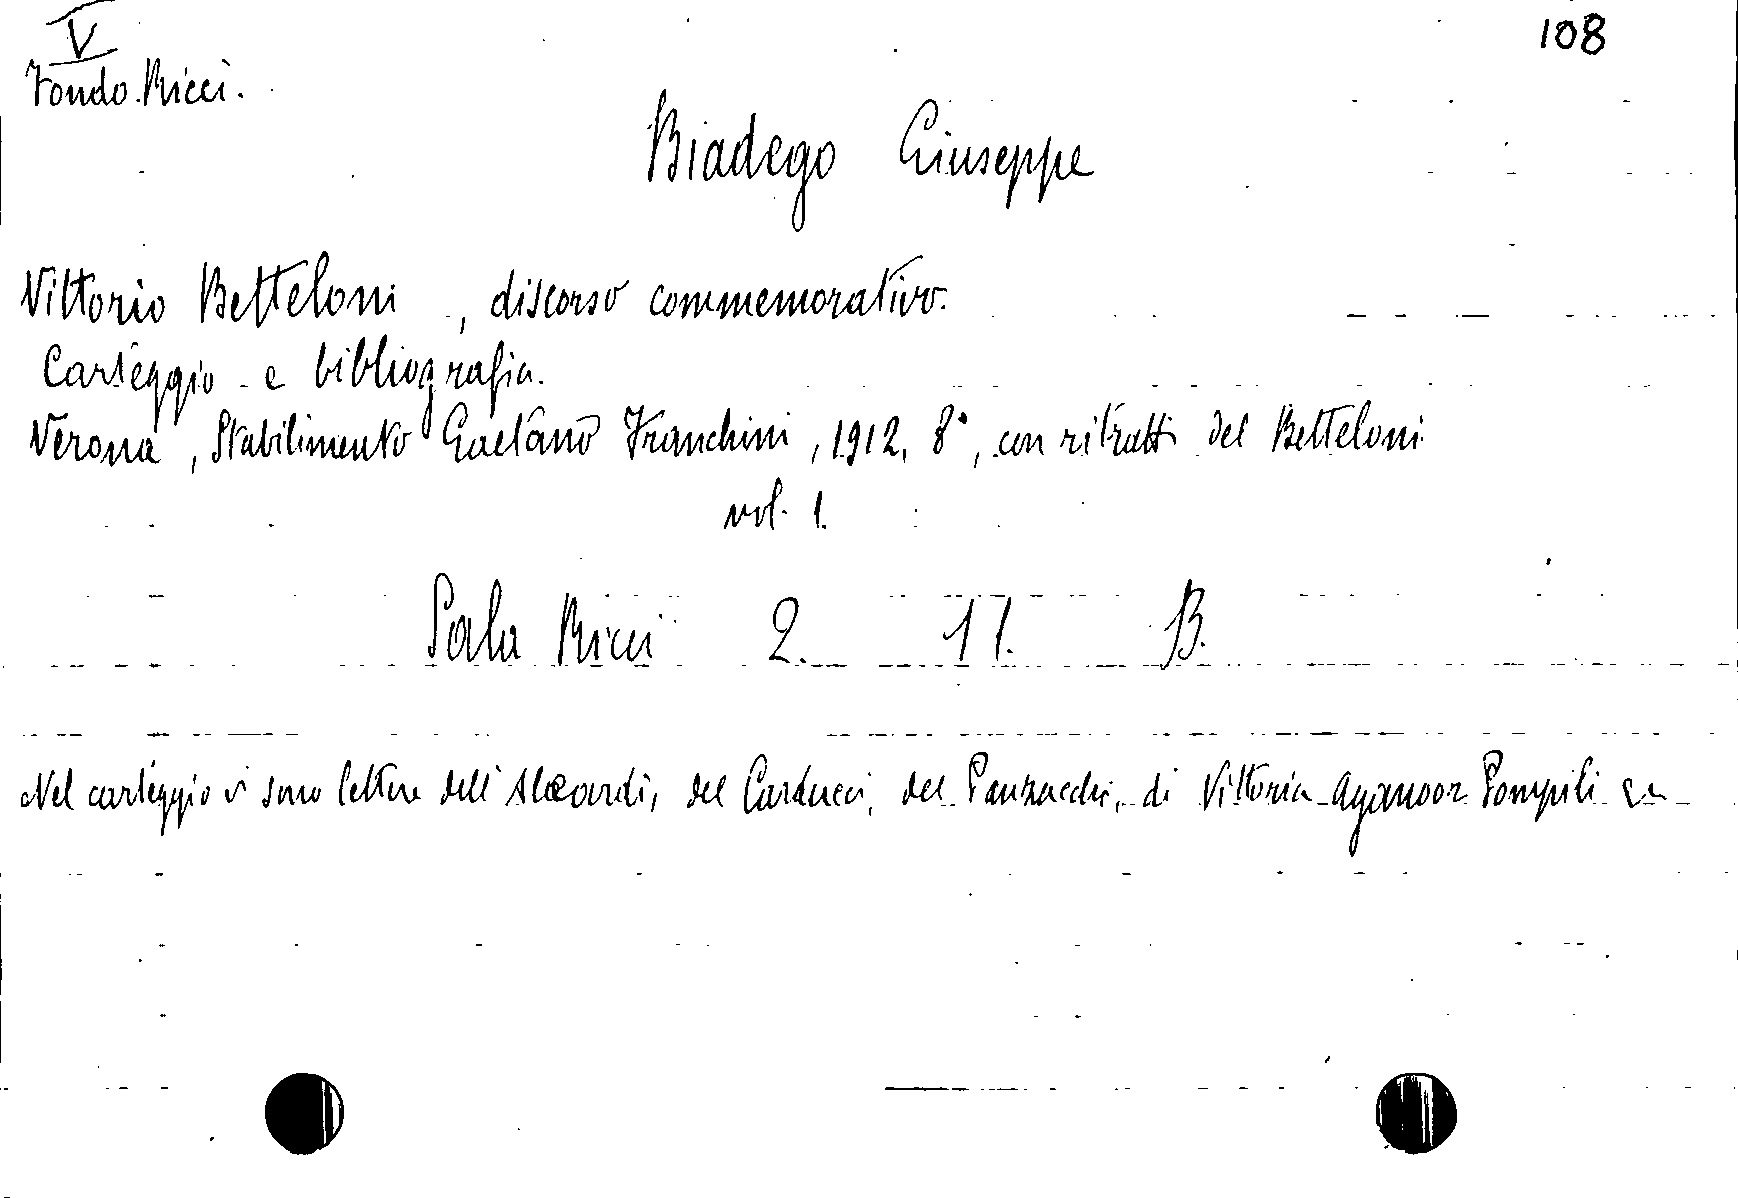 V
108
Fondo Ricci.
Biadego Giuseppe
Vittorio Betteloni, discorso commemorativo.
Carteggio e bibliografia.
Verona, Stabilimento Gaetano Franchini, 1912, 8°, con ritratti del Betteloni
vol. 1.
Sala Ricci 2. 17. B.
Nel carteggio vi sono lettere dell'Aleardi, del Carducci, del Panzacchi, di Vittoria Aganoor Pompili